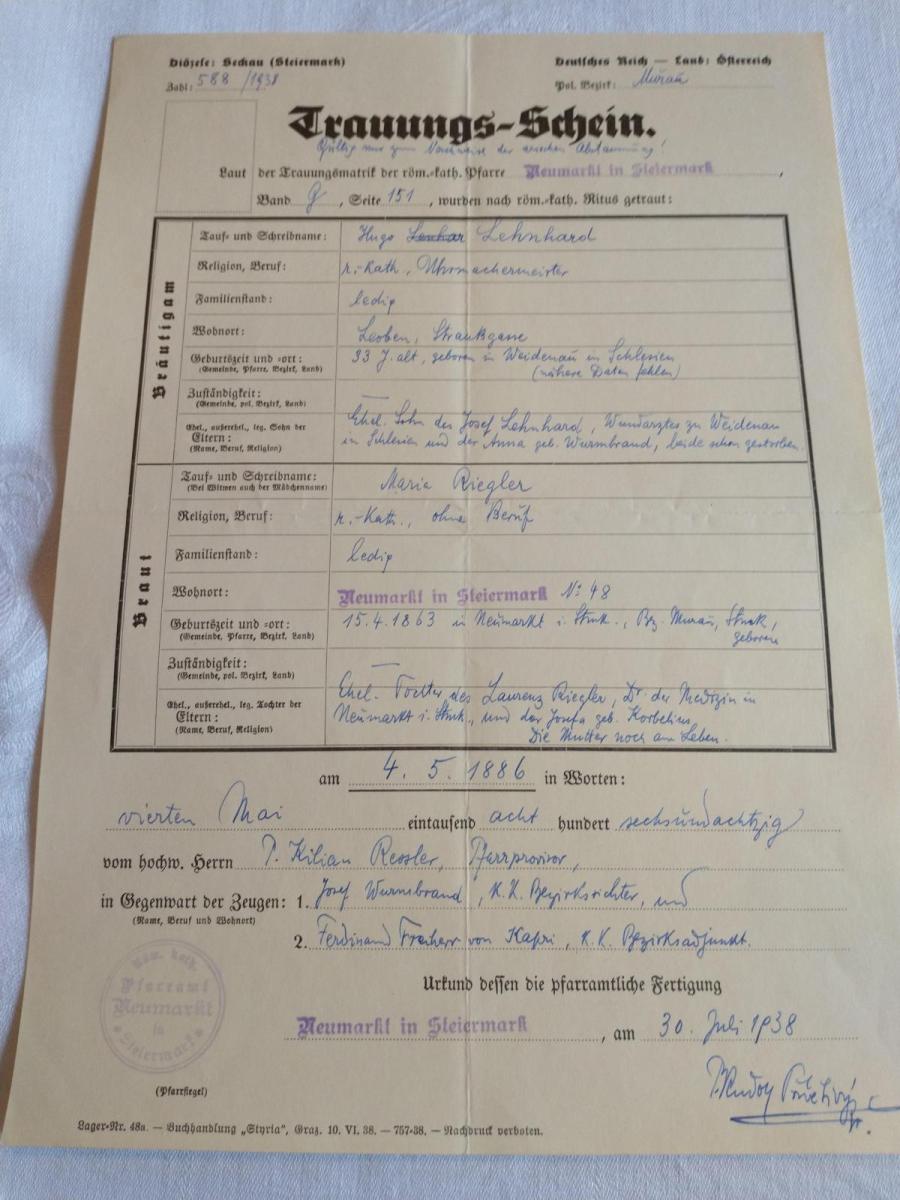 Diözese: Seckau (Steiermark)
Deutsches Reich — Land: Österreich
Zahl: 588 /1938
Pol. Bezirk: Murau
Trauungs-Schein.
Gültig nur zum Nachweise der arischen Abstammung!
Laut der Trauungsmatrik der röm.-kath. Pfarre Neumarkt in Steiermark,
Band G, Seite 151, wurden nach röm.-kath. Ritus getraut:
Bräutigam
Tauf- und Schreibname: Hugo Lenhar Lehnhard
Religion, Beruf: r.-kath., Uhrmachermeister
Familienstand: ledig
Wohnort: Leoben, Straußgasse
Geburtszeit und -ort: 33 J. alt, geboren in Weidenau in Schlesien
(Gemeinde, Pfarre, Bezirk, Land) (nähere Daten fehlen)
Zuständigkeit: —
(Gemeinde, pol. Bezirk, Land)
Ehel., außerehel., leg. Sohn der Ehel. Sohn des Josef Lehnhard, Wundarztes zu Weidenau
Eltern: in Schlesien und der Anna geb. Wurmbrand, beide schon gestorben.
(Name, Beruf, Religion)
Braut
Tauf- und Schreibname: Maria Riegler
(Bei Witwen auch der Mädchenname)
Religion, Beruf: r.-Kath., ohne Beruf
Familienstand: ledig
Wohnort: Neumarkt in Steiermark No 48
Geburtszeit und -ort: 15.4.1863 in Neumarkt i. Stmk., Bz. Murau, Stmk,
(Gemeinde, Pfarre, Bezirk, Land) geboren
Zuständigkeit: —
(Gemeinde, pol. Bezirk, Land)
Ehel., außerehel., leg. Tochter der Ehel. Tochter des Laurenz Riegler, Dr. der Medizin in
Eltern: Neumarkt i. Stmk., und der Josefa geb. Korbelius.
(Name, Beruf, Religion) Die Mutter noch am Leben.
am 4. 5. 1886 in Worten:
vierten Mai eintausend acht hundert sechsundachtzig
vom hochw. Herrn P. Kilian Ressler, Pfarrprovisor,
in Gegenwart der Zeugen: 1. Josef Wurmbrand, K.K. Bezirksrichter, und
(Name, Beruf und Wohnort)
2. Ferdinand Freiherr von Kapri, K.K. Bezirksadjunkt.
Urkund dessen die pfarramtliche Fertigung
Neumarkt in Steiermark, am 30. Juli 1938
Röm. kath.
Pfarramt
Neumarkt
in
Steiermark
(Pfarrsiegel)
Lager-Nr. 48a. — Buchhandlung „Styria“, Graz. 10. VI. 38. — 757-38. — Nachdruck verboten.